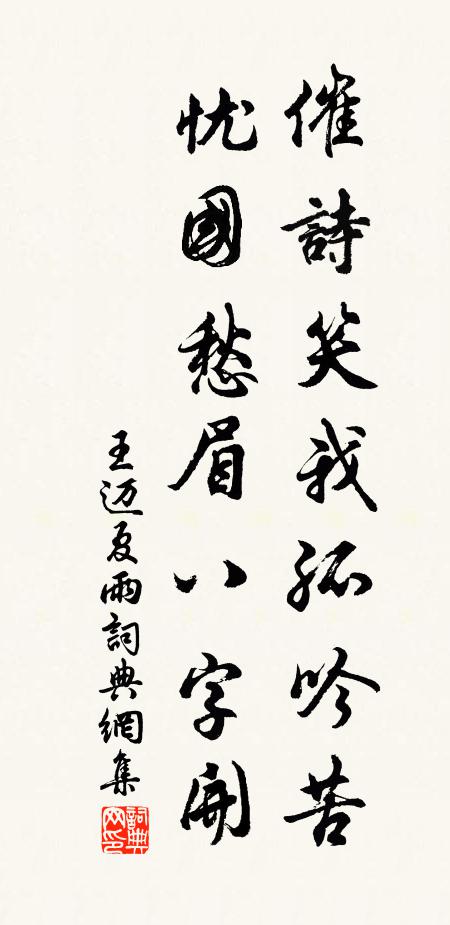 催詩笑我孤吟苦
忧國愁眉八字開
王迈夏雨詞典網集
詞典网印